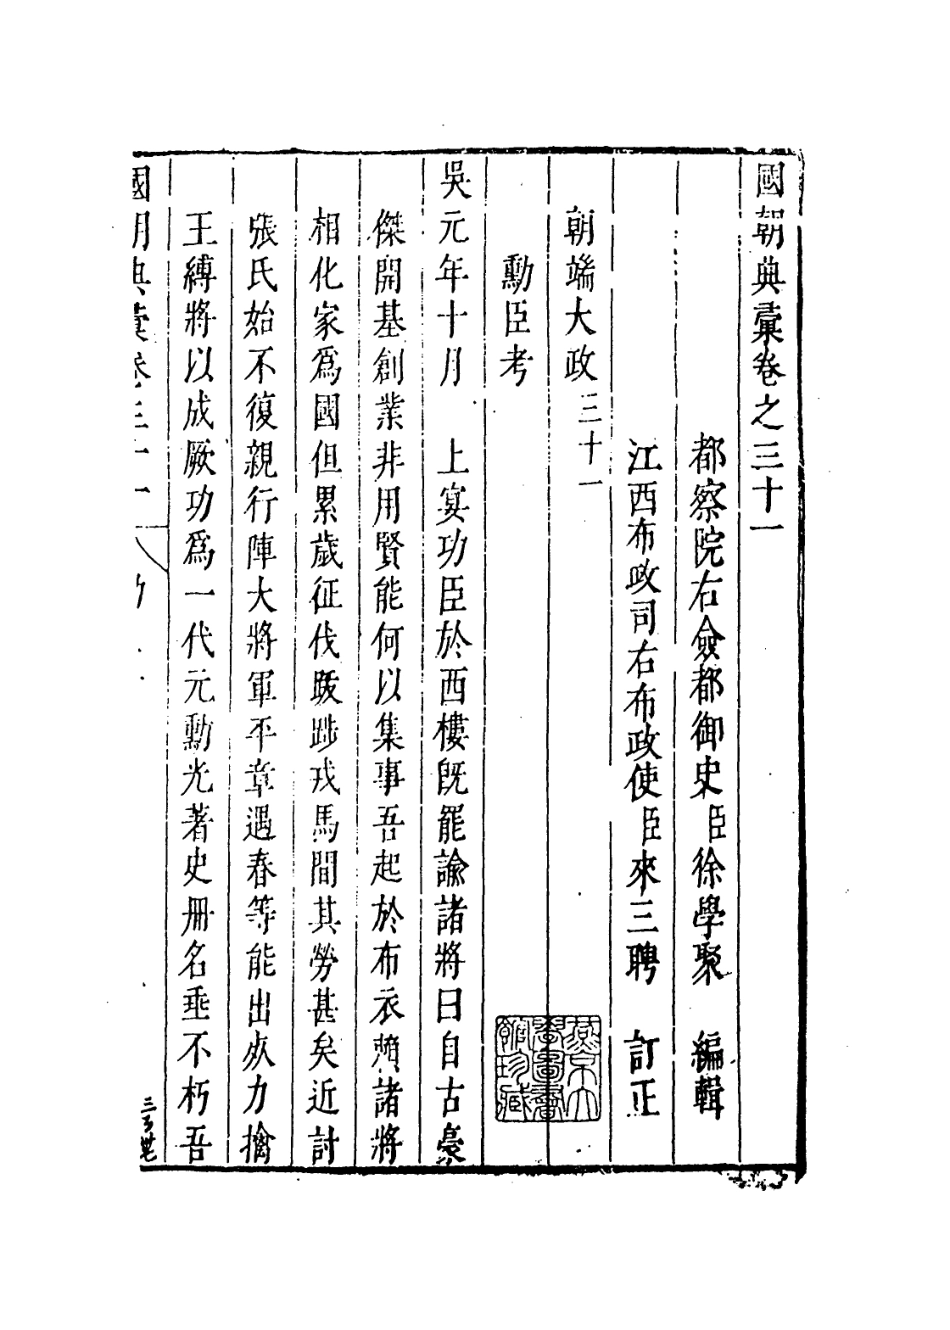 國朝典彙卷之三十一
都察院右僉都御史臣徐學聚 編輯
江西布政司右布政使臣來三聘 訂正
朝端大政三十一
勳臣考
吳元年十月 上宴功臣於西樓旣罷諭諸將曰自古豪
傑開基創業非用賢能何以集事吾起於布衣賴諸將
相化家爲國但累歲征伐跋踄戎馬間其勞甚矣近討
張氏始不復親行陣大將軍平章遇春等能出死力擒
王縛將以成厥功爲一代元勳光著史册名垂不朽吾
國朝典彙卷三十一
燕京大學圖書館珍藏